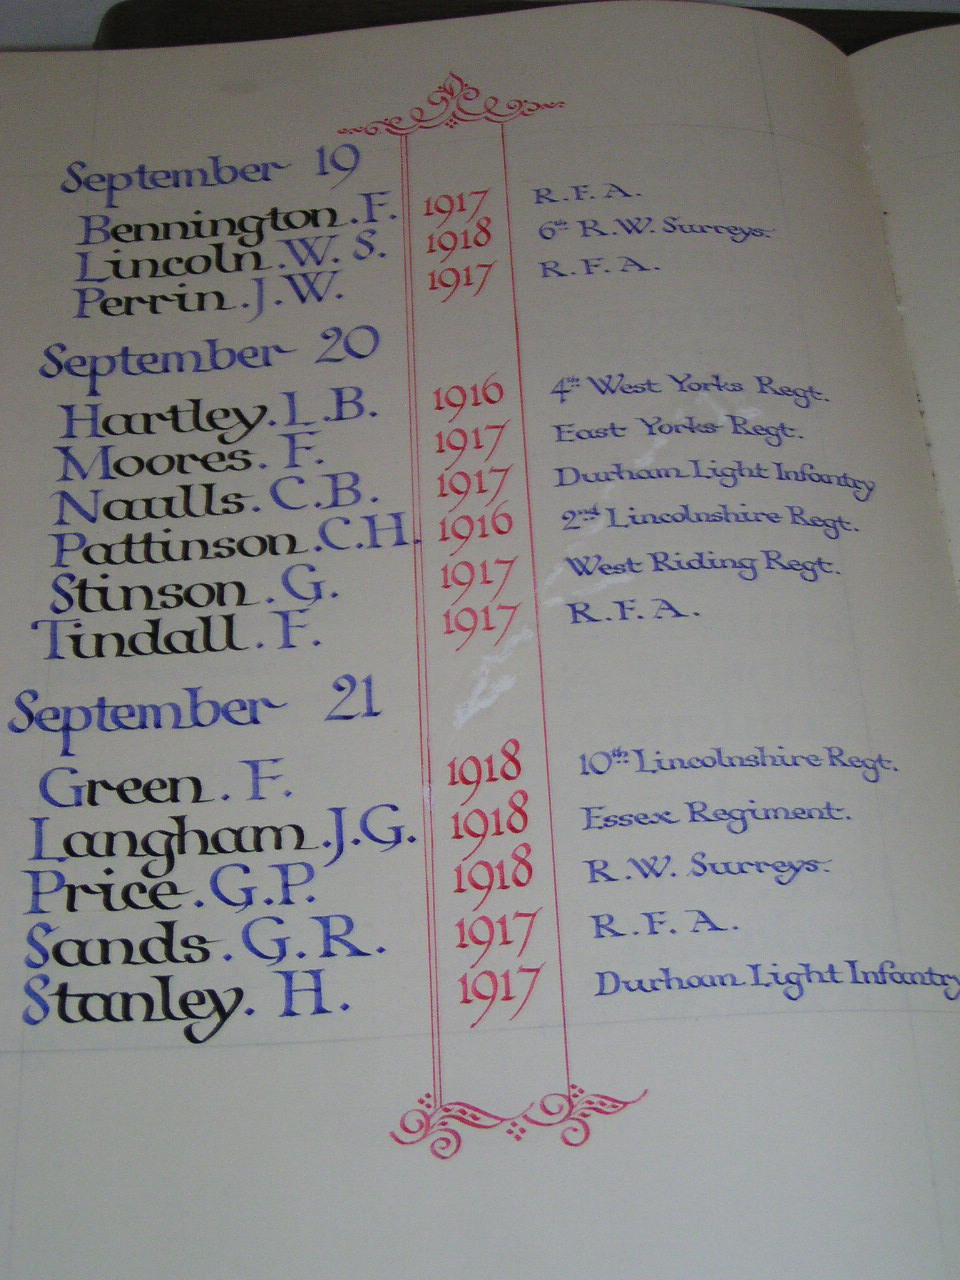 September 19
Bennington. F. 1917 R.F.A.
Lincoln. W. S. 1918 6th R.W. Surreys.
Perrin. J. W. 1917 R.F.A.
September 20
Hartley. L. B. 1916 4th West Yorks Regt.
Moores. F. 1917 East Yorks Regt.
Naulls. C. B. 1917 Durham Light Infantry
Pattinson. C.H. 1916 2nd Lincolnshire Regt.
Stinson. G. 1917 West Riding Regt.
Tindall. F. 1917 R.F.A.
September 21
Green. F. 1918 10th Lincolnshire Regt.
Langham. J.G. 1918 Essex Regiment.
Price. G.P. 1918 R.W. Surreys.
Sands. G. R. 1917 R.F.A.
Stanley. H. 1917 Durham Light Infantry